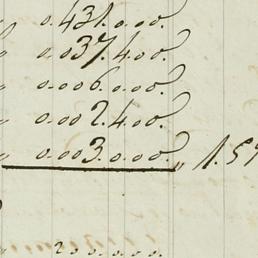 0.431.0.00.
0.037.4.00.
0.006.0.00.
0.002.4.00.
0.003.0.00. " 1.59
200.0.00.